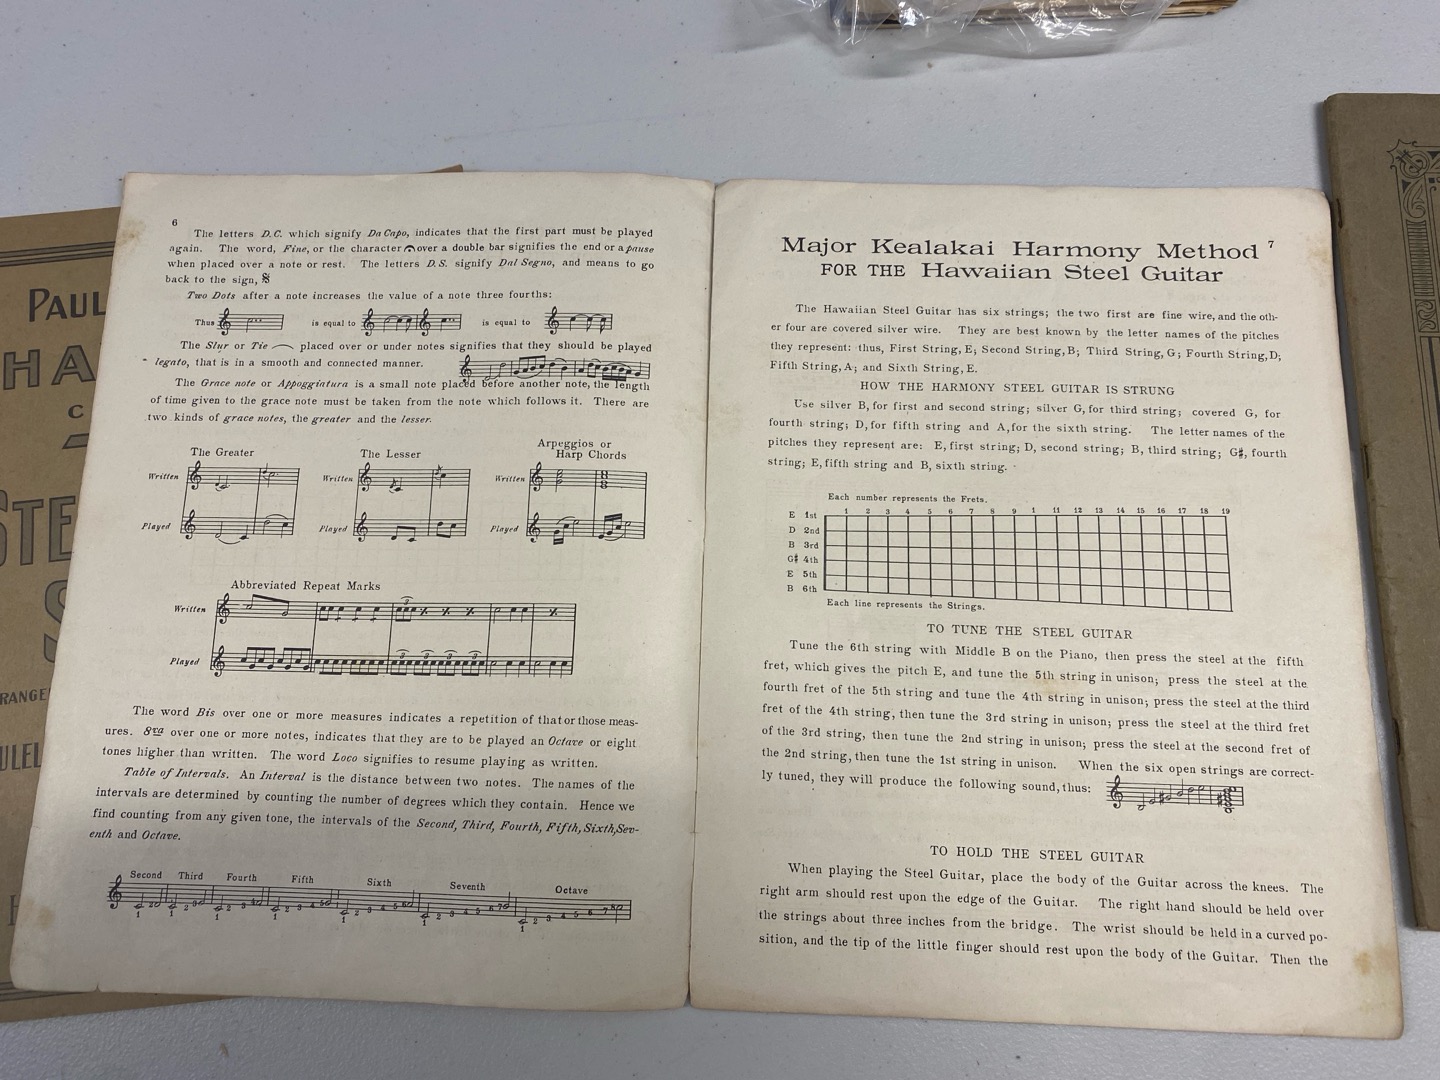 PAUL
HA
C
STE
S
RANGE
ULEL
6
The letters D.C. which signify Da Capo, indicates that the first part must be played
again. The word, Fine, or the character 𝄐 over a double bar signifies the end or a pause
when placed over a note or rest. The letters D.S. signify Dal Segno, and means to go
back to the sign, 𝄋
Two Dots after a note increases the value of a note three fourths:
Thus is equal to is equal to
The Slur or Tie placed over or under notes signifies that they should be played
legato, that is in a smooth and connected manner.
The Grace note or Appoggiatura is a small note placed before another note, the length
of time given to the grace note must be taken from the note which follows it. There are
two kinds of grace notes, the greater and the lesser.
The Greater
Written
Played
The Lesser
Written
Played
Arpeggios or
Harp Chords
Written
Played
Abbreviated Repeat Marks
Written
3
Played
3 3 3 3
The word Bis over one or more measures indicates a repetition of that or those meas-
ures. 8va over one or more notes, indicates that they are to be played an Octave or eight
tones higher than written. The word Loco signifies to resume playing as written.
Table of Intervals. An Interval is the distance between two notes. The names of the
intervals are determined by counting the number of degrees which they contain. Hence we
find counting from any given tone, the intervals of the Second, Third, Fourth, Fifth, Sixth, Sev-
enth and Octave.
Second Third Fourth Fifth Sixth Seventh Octave
1 2 1 2 3 1 2 3 4 1 2 3 4 5 1 2 3 4 5 6 1 2 3 4 5 6 7 1 2 3 4 5 6 7 8
7
Major Kealakai Harmony Method
FOR THE Hawaiian Steel Guitar
The Hawaiian Steel Guitar has six strings; the two first are fine wire, and the oth-
er four are covered silver wire. They are best known by the letter names of the pitches
they represent: thus, First String, E; Second String, B; Third String, G; Fourth String, D;
Fifth String, A; and Sixth String, E.
HOW THE HARMONY STEEL GUITAR IS STRUNG
Use silver B, for first and second string; silver G, for third string; covered G, for
fourth string; D, for fifth string and A, for the sixth string. The letter names of the
pitches they represent are: E, first string; D, second string; B, third string; G♯, fourth
string; E, fifth string and B, sixth string.
Each number represents the Frets.
1 2 3 4 5 6 7 8 9 1 11 12 13 14 15 16 17 18 19
E 1st
D 2nd
B 3rd
G♯ 4th
E 5th
B 6th
Each line represents the Strings.
TO TUNE THE STEEL GUITAR
Tune the 6th string with Middle B on the Piano, then press the steel at the fifth
fret, which gives the pitch E, and tune the 5th string in unison; press the steel at the
fourth fret of the 5th string and tune the 4th string in unison; press the steel at the third
fret of the 4th string, then tune the 3rd string in unison; press the steel at the third fret
of the 3rd string, then tune the 2nd string in unison; press the steel at the second fret of
the 2nd string, then tune the 1st string in unison. When the six open strings are correct-
ly tuned, they will produce the following sound, thus:
TO HOLD THE STEEL GUITAR
When playing the Steel Guitar, place the body of the Guitar across the knees. The
right arm should rest upon the edge of the Guitar. The right hand should be held over
the strings about three inches from the bridge. The wrist should be held in a curved po-
sition, and the tip of the little finger should rest upon the body of the Guitar. Then the